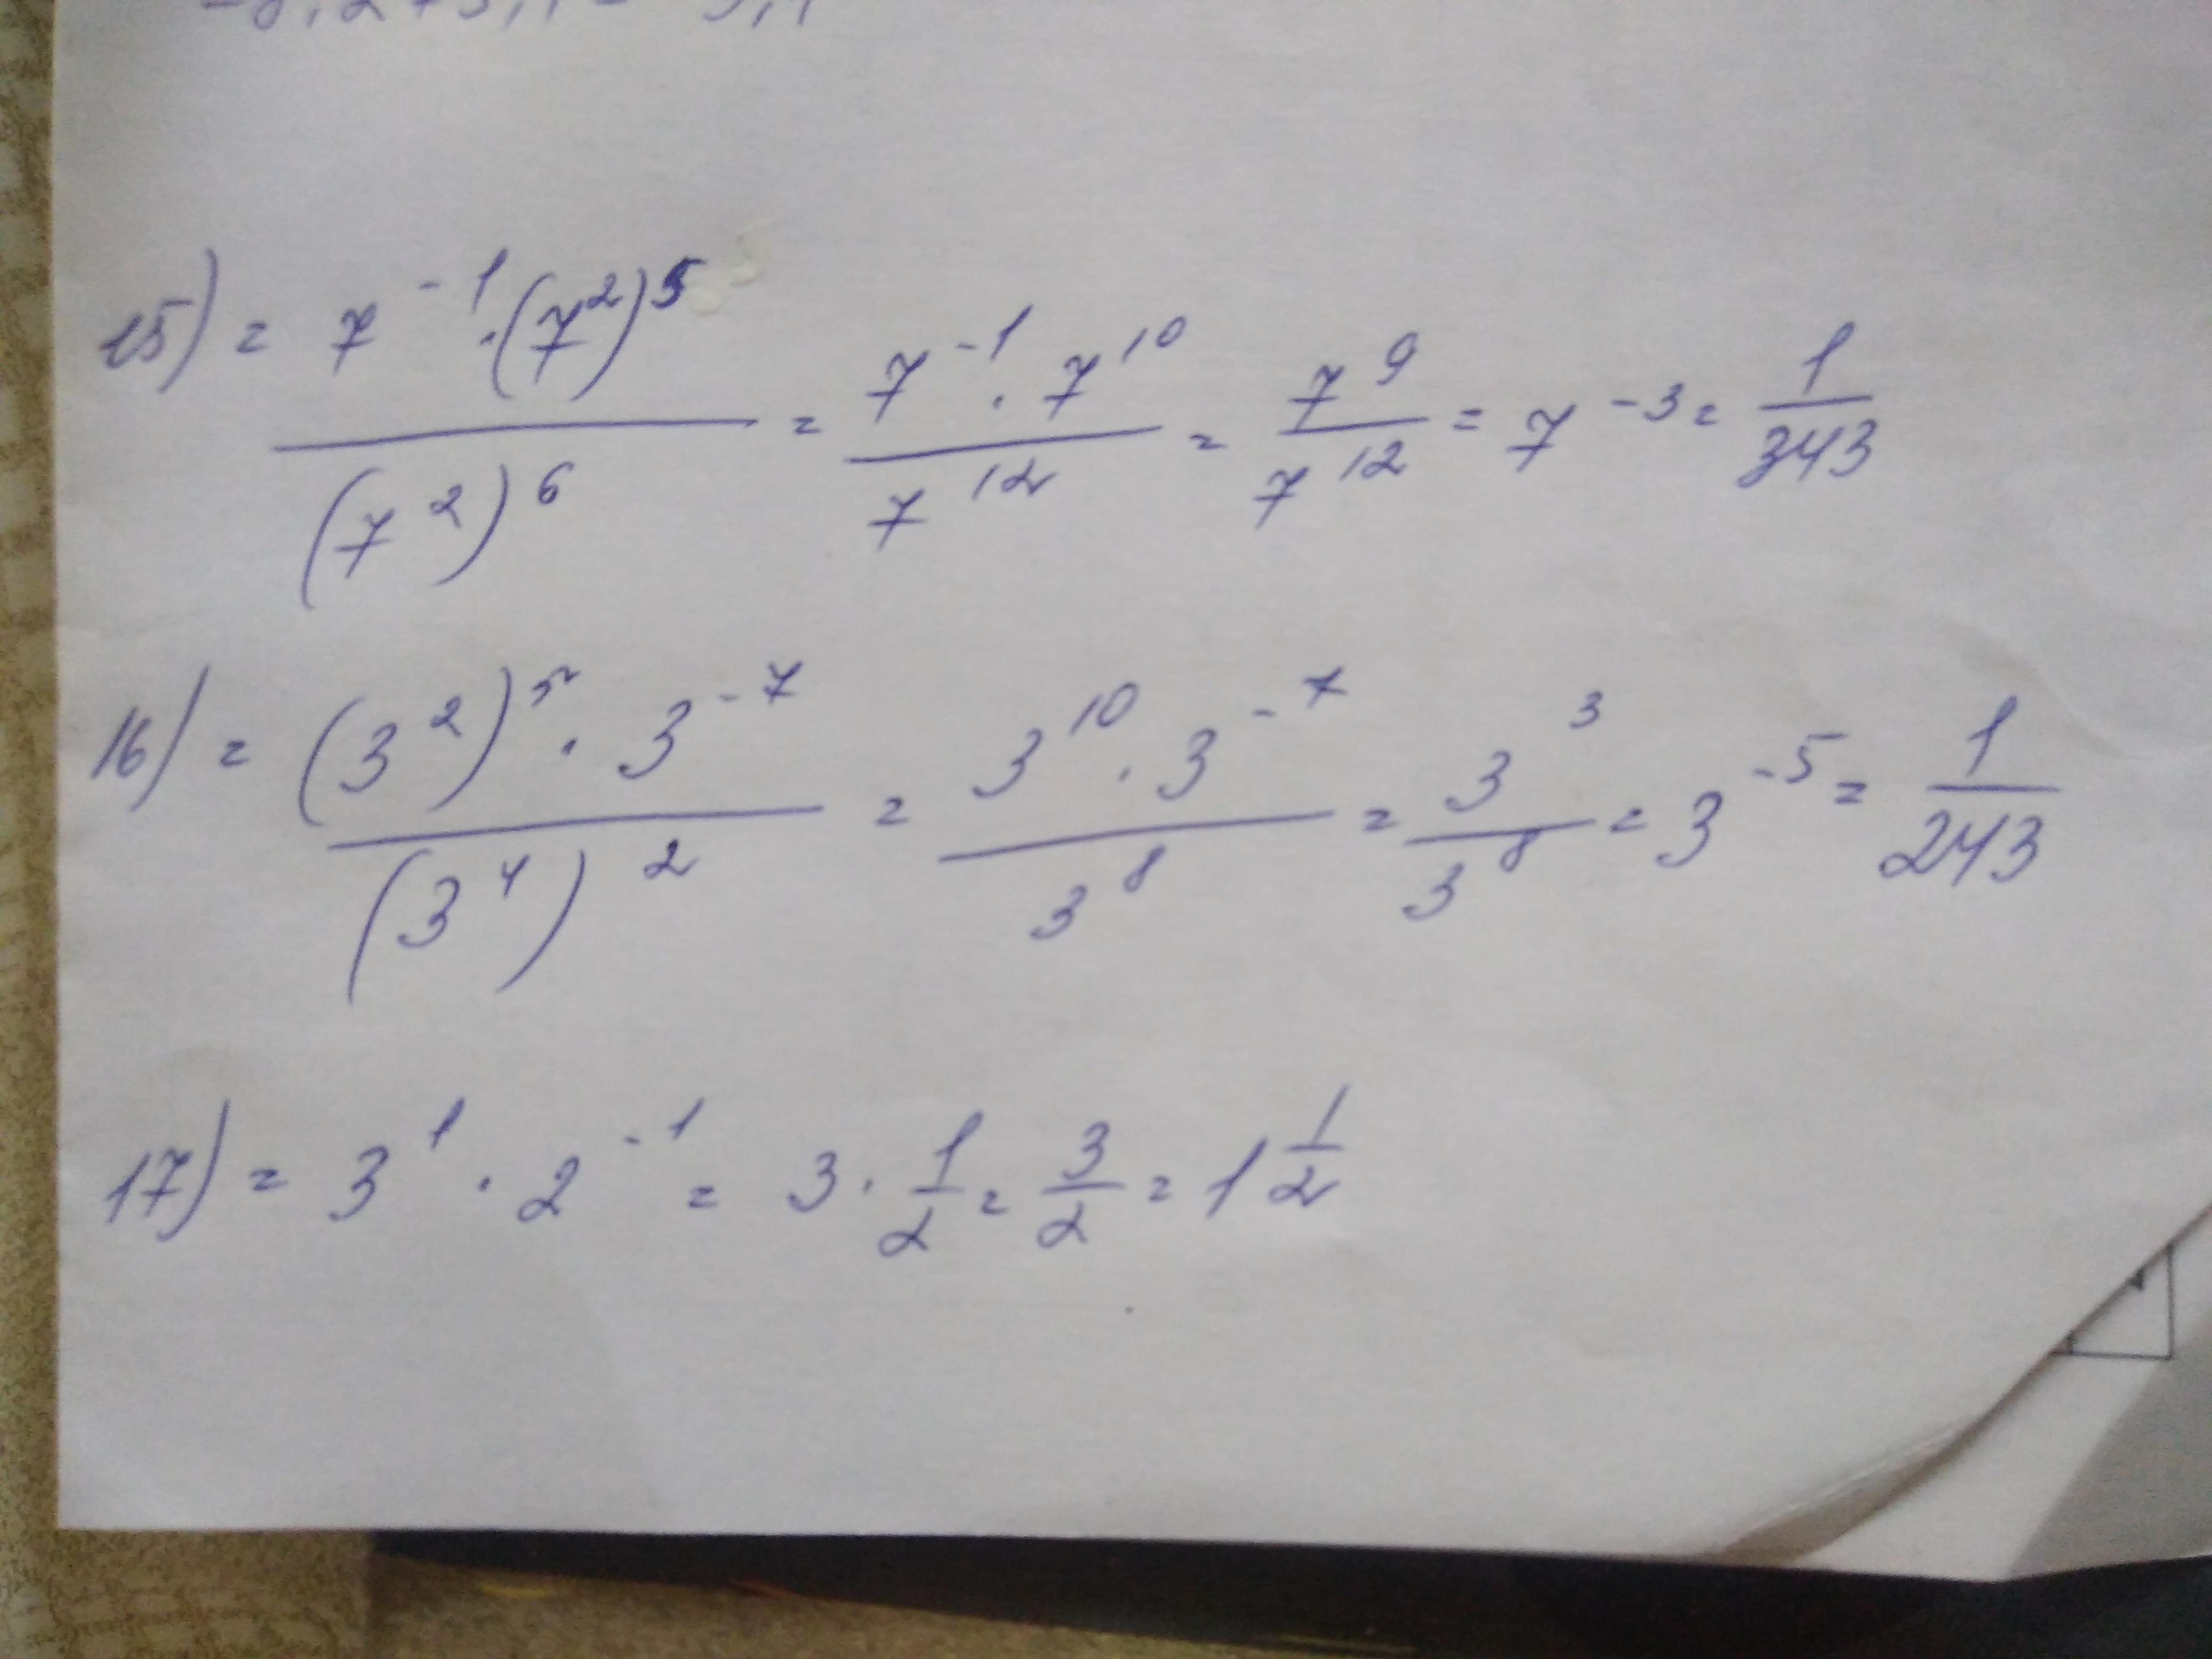 15) = 7^-1 · (7^2)^5 / (7^2)^6 = 7^-1 · 7^10 / 7^12 = 7^9 / 7^12 = 7^-3 = 1/343
16) = (3^2)^5 · 3^-7 / (3^4)^2 = 3^10 · 3^-7 / 3^8 = 3^3 / 3^8 = 3^-5 = 1/243
17) = 3^1 · 2^-1 = 3 · 1/2 = 3/2 = 1 1/2